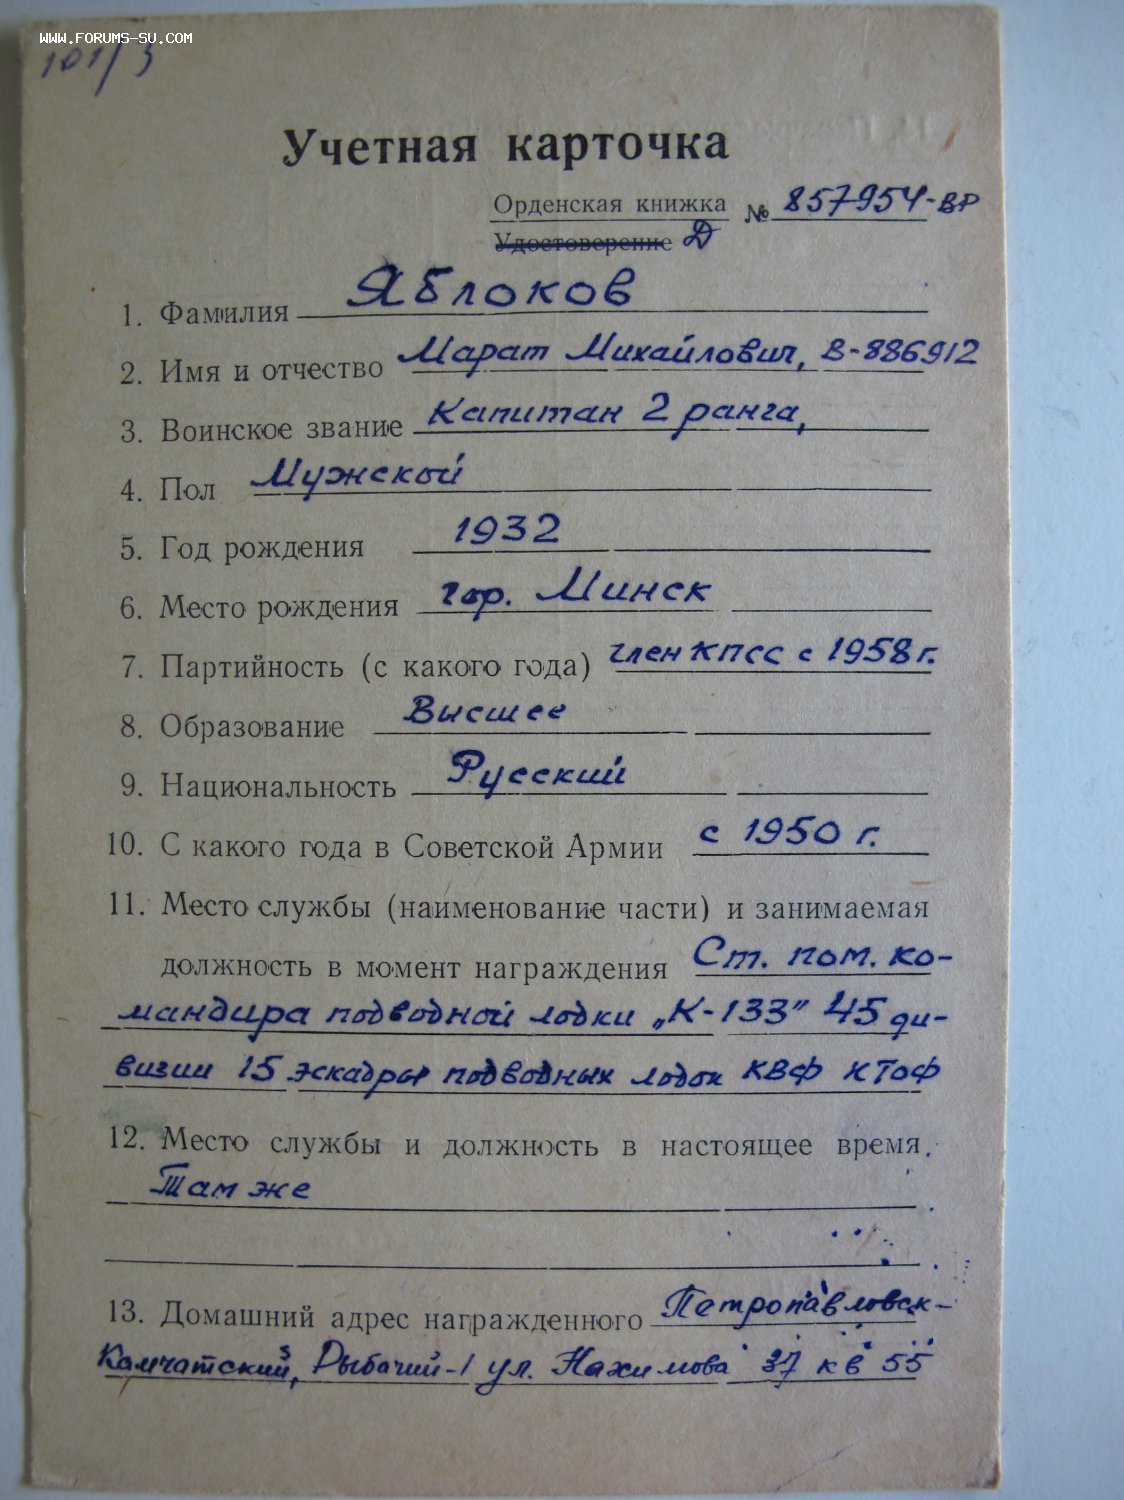 WWW.FORUMS-SU.COM
101/3
Учетная карточка
Орденская книжка № 857954-ВР
Удостоверение Д
1. Фамилия Яблоков
2. Имя и отчество Марат Михайлович, В-886912
3. Воинское звание Капитан 2 ранга,
4. Пол Мужской
5. Год рождения 1932
6. Место рождения гор. Минск
7. Партийность (с какого года) член КПСС с 1958 г.
8. Образование Высшее
9. Национальность Русский
10. С какого года в Советской Армии с 1950 г.
11. Место службы (наименование части) и занимаемая
должность в момент награждения Ст. пом. ко-
мандира подводной лодки „К-133" 45 ди-
визии 15 эскадры подводных лодок КВФ КТОФ
12. Место службы и должность в настоящее время.
Там же
13. Домашний адрес награжденного Петропавловск-
Камчатский, Рыбачий-1 ул. Нахимова 37 кв 55